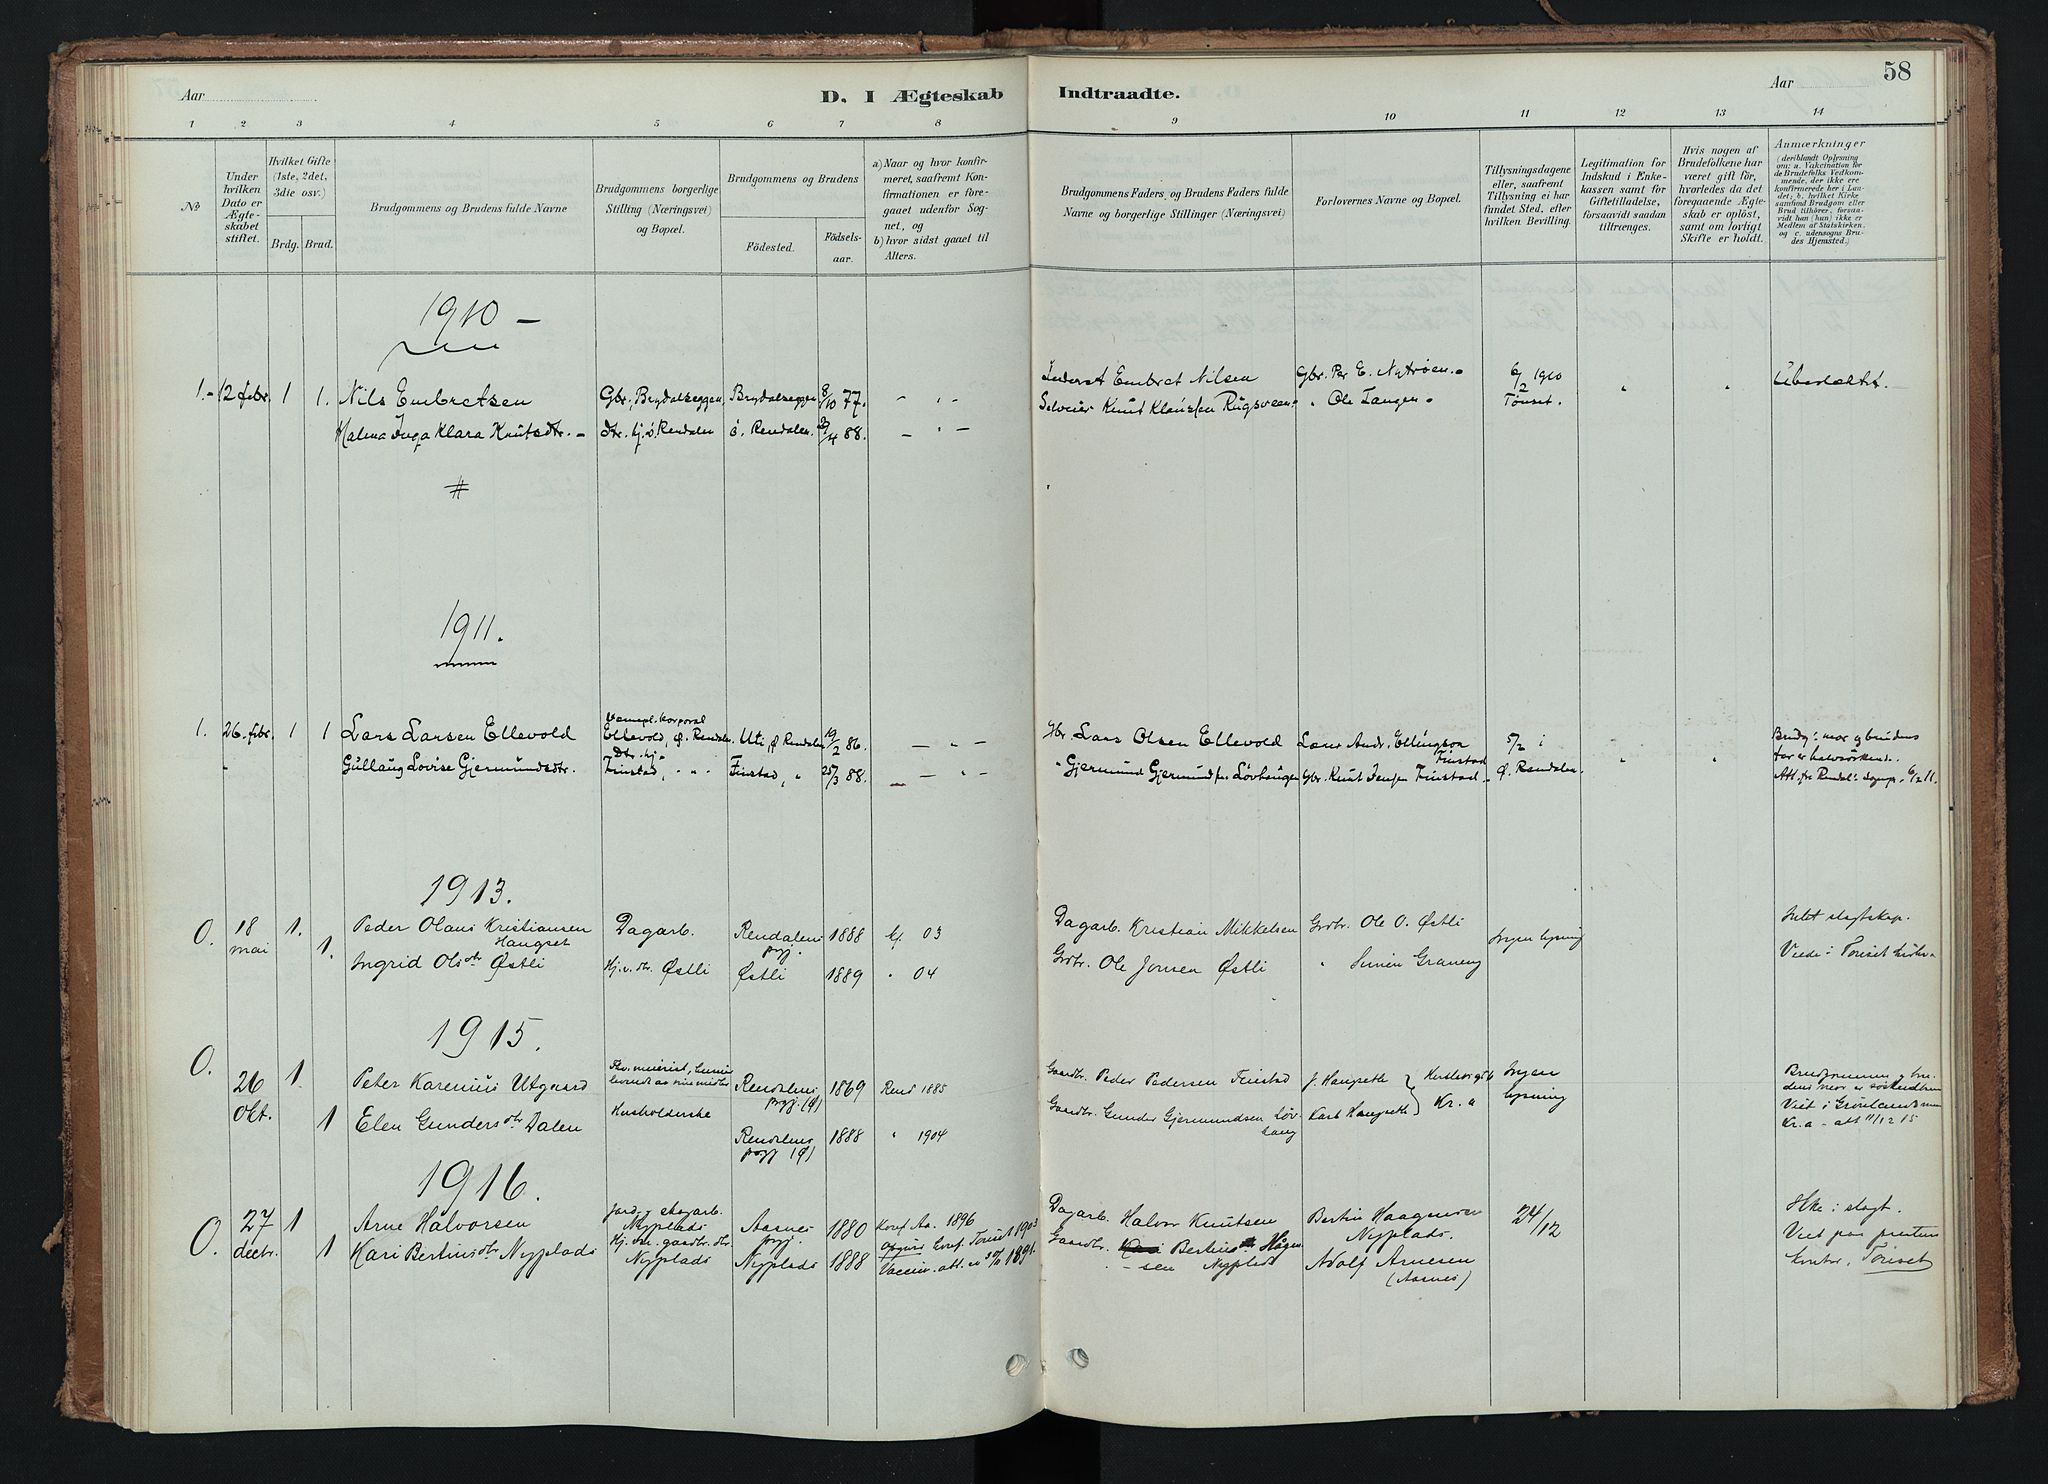 58
Aar
D. I Ægteskab
Indtraadte.
Aar
1 2 3 4 5 6 7 8
9 10 11 12 13 14
No
Under hvilken Dato er Ægteskabet stiftet.
Hvilket Gifte (1ste, 2det, 3die osv.)
Brdg. Brud.
Brudgommens og Brudens fulde Navne
Brudgommens borgerlige Stilling (Næringsvei) og Bopæl.
Brudgommens og Brudens
Födested.
Födsels-aar.
a) Naar og hvor konfirmeret, saafremt Konfirmationen er foregaaet udenfor Sognet, og
b) hvor sidst gaaet til Alters.
Brudgommens Faders, og Brudens Faders fulde Navne og borgerlige Stillinger (Næringsvei)
Forlovernes Navne og Bopæl.
Tillysningsdagene eller, saafremt Tillysning ei har fundet Sted, efter hvilken Bevilling.
Legitimation for Indskud i Enkekassen samt for Giftetilladelse, forsaavidt saadan tiltrænges.
Hvis nogen af Brudefolkene har været gift før, hvorledes da det foregaaende Ægteskab er oplöst, samt om lovligt Skifte er holdt.
Anmærkninger (deriblandt Oplysning om: a. Vakcination for de Brudefolks Vedkommende, der ikke ere konfirmerede her i Landet; b. hvilket Kirkesamfund Brudgom eller Brud tilhörer, forsaavidt han (hun) ikke er Medlem af Statskirken, og c. udensogns Brudes Hjemsted.)
1910 –
1. 12 febr. 1 1. Nils Embretsen Gbr., Brydalseggen, Brydalseggen 8/10 77. – " – Embret Nilsen Gbr. Per E. Nytrøen. 6/2 1910 " "
Malena Inga Klara Knutsdtr. ø. Rendalen ø. Rendalen. 29/4 88. – " – Knut Rugsveen " Ole Tangen. Tönset.
#
1911.
1. 26. febr. 1 1 Lars Larsen Ellevold korporal Ellevold, Ø. Rendalen Uti, Ø Rendalen 19/2 86. – " – Gbr. Lars Olsen Ellevold Andr. Ellingson Finstad 5/2 i
Gullaug Lovise Gjermundsdtr. Dtr. hj. Finstad, " " Finstad, " 25/3 88. – " – " Gjermund Løvhaugen Gbr. Knut Jensen Finstad Ø. Rendalen. " "
Brudg: mor og brudens far er halvsøskende.
Att. fra Rendal: 6/2 11.
1913.
O. 18 mai 1. Peder Olaus Kristiansen Haugset Dagarb. Rendalens prgj. 1888 kf. 03 Dagarb. Kristian Mikkelsen Grdbr. Ole O. Østli Ingen lysning Intet slagtskap.
1. Ingrid Olsdtr Østli Hj.v. dtr. Østli Østli 1889 " 04 Grdbr. Ole Jonsen Østli " Simen Graneng Viede i Tønset
1915.
O. 26 Okt. 1. Peter Karenius Utgaard Rendalens prgj. (Ø) 1869 Rend 1885 Gaardbr. Peder Pedersen Finstad J. Haugseth Kr. a Ingen lysning
1 Elen Gundersdtr Dalen Husholderske Rendalens prgj (Ø) 1888 " 1904 Gaardbr. Gunder Gjermundsen Løvhaug Karl Haugseth
Brudgommen og brudens mor er søskendbarn
Viet i Grønlands
Kr.a – att 11/12 15
1916.
O. 27 decbr. 1 Arne Halvorsen Jord- og skogarb. Nyplads Aasnes prgj. 1880 Konf. Aa. 1896 Dagarb. Halvor Knutsen Bertin Haagensen Nyplads. 24/12 Ikke i slagt.
1 Kari Bertinsdtr Nyplads Hj.v. gaardbr. dtr. Nyplads Nyplads 1888 konf. Tønset 1903 Vaccin. att. 1891. Gaardbr. Bertin Hågensen Nyplads Adolf Arnesen (Aasnes)
Viet paa prestens kontor, Tönset